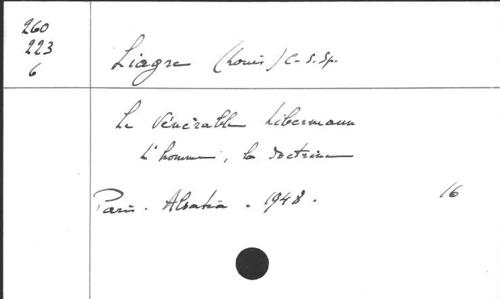 260
223
6
Liagre (Louis) C.S.Sp.
Le Vénérable Libermann
L'homme, la doctrine
Paris. Alsatia. 1948. 16